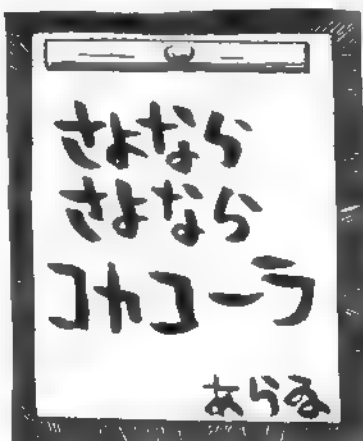 さよなら
さよなら
コカコーラ
あらゐ